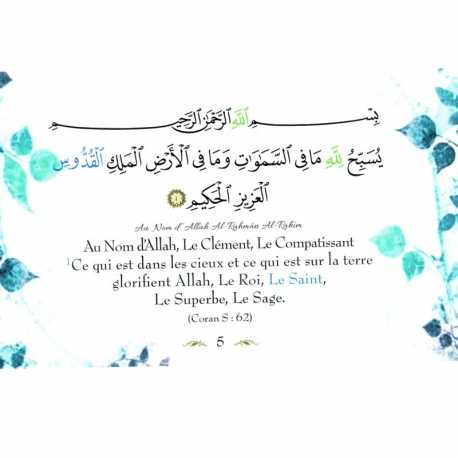 بِسْمِ اللَّهِ الرَّحْمَٰنِ الرَّحِيمِ
يُسَبِّحُ لِلَّهِ مَا فِي السَّمَاوَاتِ وَمَا فِي الْأَرْضِ الْمَلِكِ الْقُدُّوسِ
الْعَزِيزِ الْحَكِيمِ ١
Au Nom d'Allah Al-Rahmân Al-Rahim
Au Nom d'Allah, Le Clément, Le Compatissant
¹Ce qui est dans les cieux et ce qui est sur la terre
glorifient Allah, Le Roi, Le Saint,
Le Superbe, Le Sage.
(Coran S : 62)
5